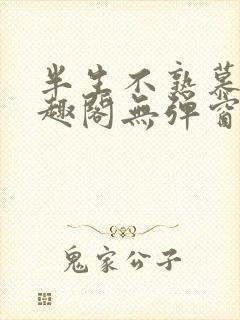 半生不熟慕
趣閣無彈窗
鬼家公子